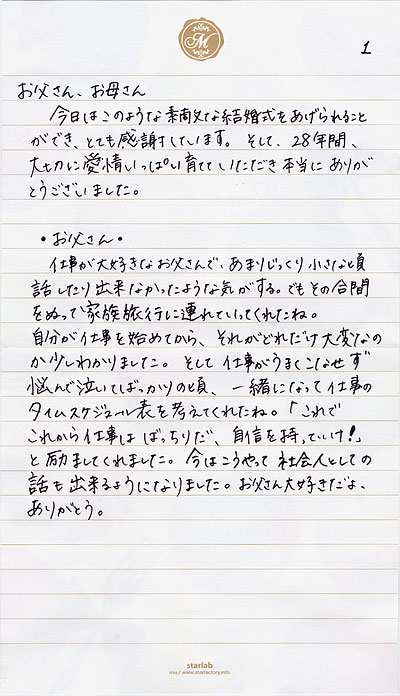 M
1
お父さん、お母さん
今日はこのような素敵な結婚式をあげられること
ができ、とても感謝しています。そして、28年間、
大切に愛情いっぱい育てていただき本当にありが
とうございました。
・お父さん・
仕事が大好きなお父さんで、あまりじっくり小さな頃
話したり出来なかったような気がする。でもその合間
をぬって家族旅行に連れていってくれたね。
自分が仕事を始めてから、それがどれだけ大変なの
か少しわかりました。そして仕事がうまくこなせず
悩んで泣いてばっかりの頃、一緒になって仕事の
タイムスケジュール表を考えてくれたね。「これで
これから仕事はばっちりだ、自信を持っていけ!」
と励ましてくれました。今はこうやって社会人としての
話も出来るようになりました。お父さん大好きだよ、
ありがとう。
starlab
mia / www.starfactory.info